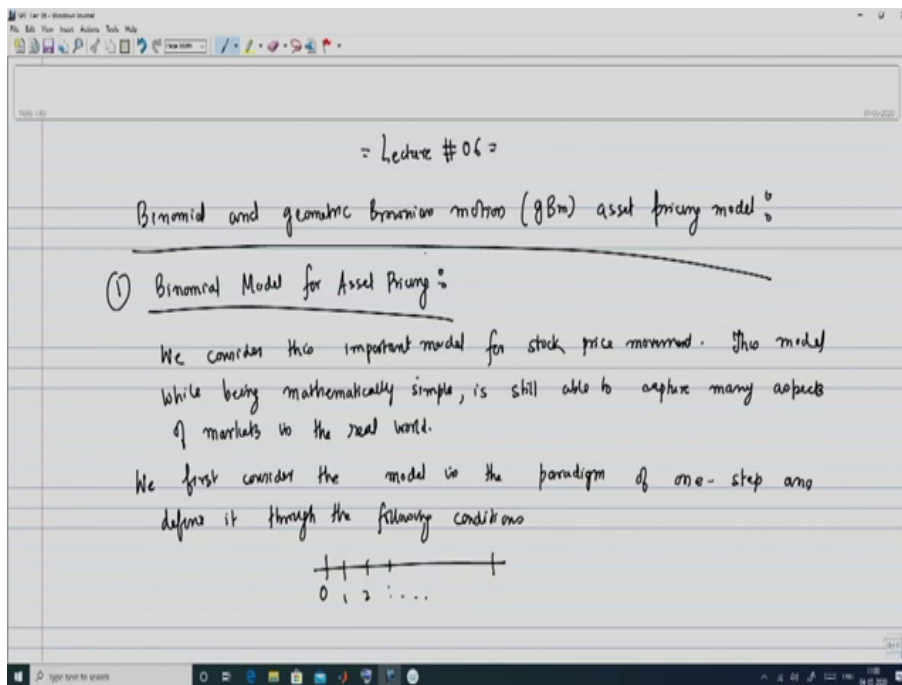 File Edit View Insert Actions Tools Help
Page Width
= Lecture # 06 =
Binomial and geometric Brownian motion (gBm) asset pricing model :
① Binomial Model for Asset Pricing :
We consider this important model for stock price movement. This model
while being mathematically simple, is still able to capture many aspects
of markets in the real world.
We first consider the model in the paradigm of one-step and
define it through the following conditions
0 1 2 : . . . .
Type here to search